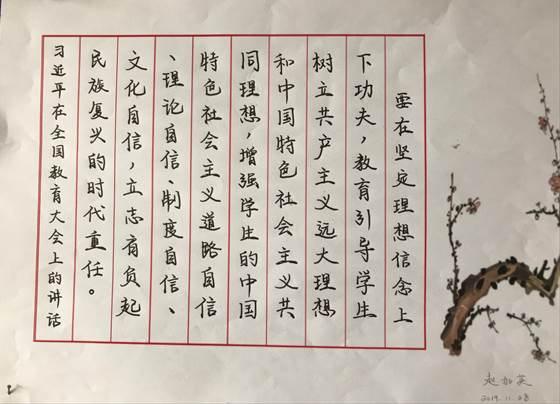 要在坚定理想信念上
下功夫，教育引导学生
树立共产主义远大理想
和中国特色社会主义共
同理想，增强学生的中国
特色社会主义道路自信
、理论自信、制度自信、
文化自信，立志肩负起
民族复兴的时代重任。
习近平在全国教育大会上的讲话
赵加英
2019.11.28